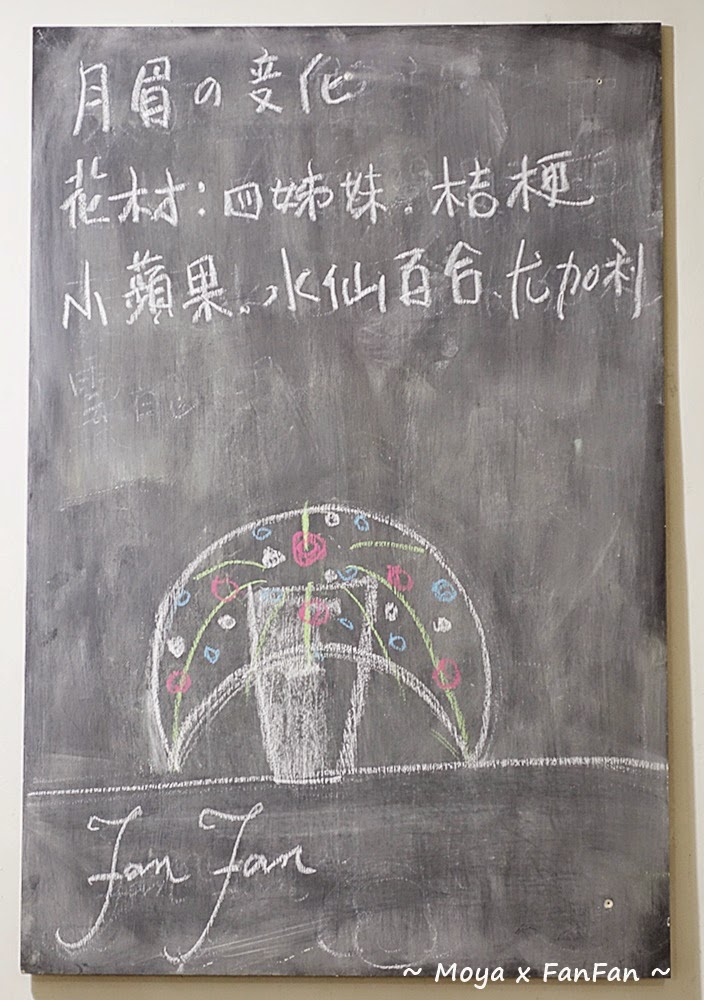 月眉の変化
花材：四姊妹.桔梗
小蘋果.水仙百合.尤加利
Fan Fan
~ Moya x FanFan ~